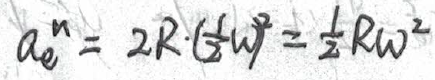 aₑⁿ = 2R·(½ω)² = ½Rω²